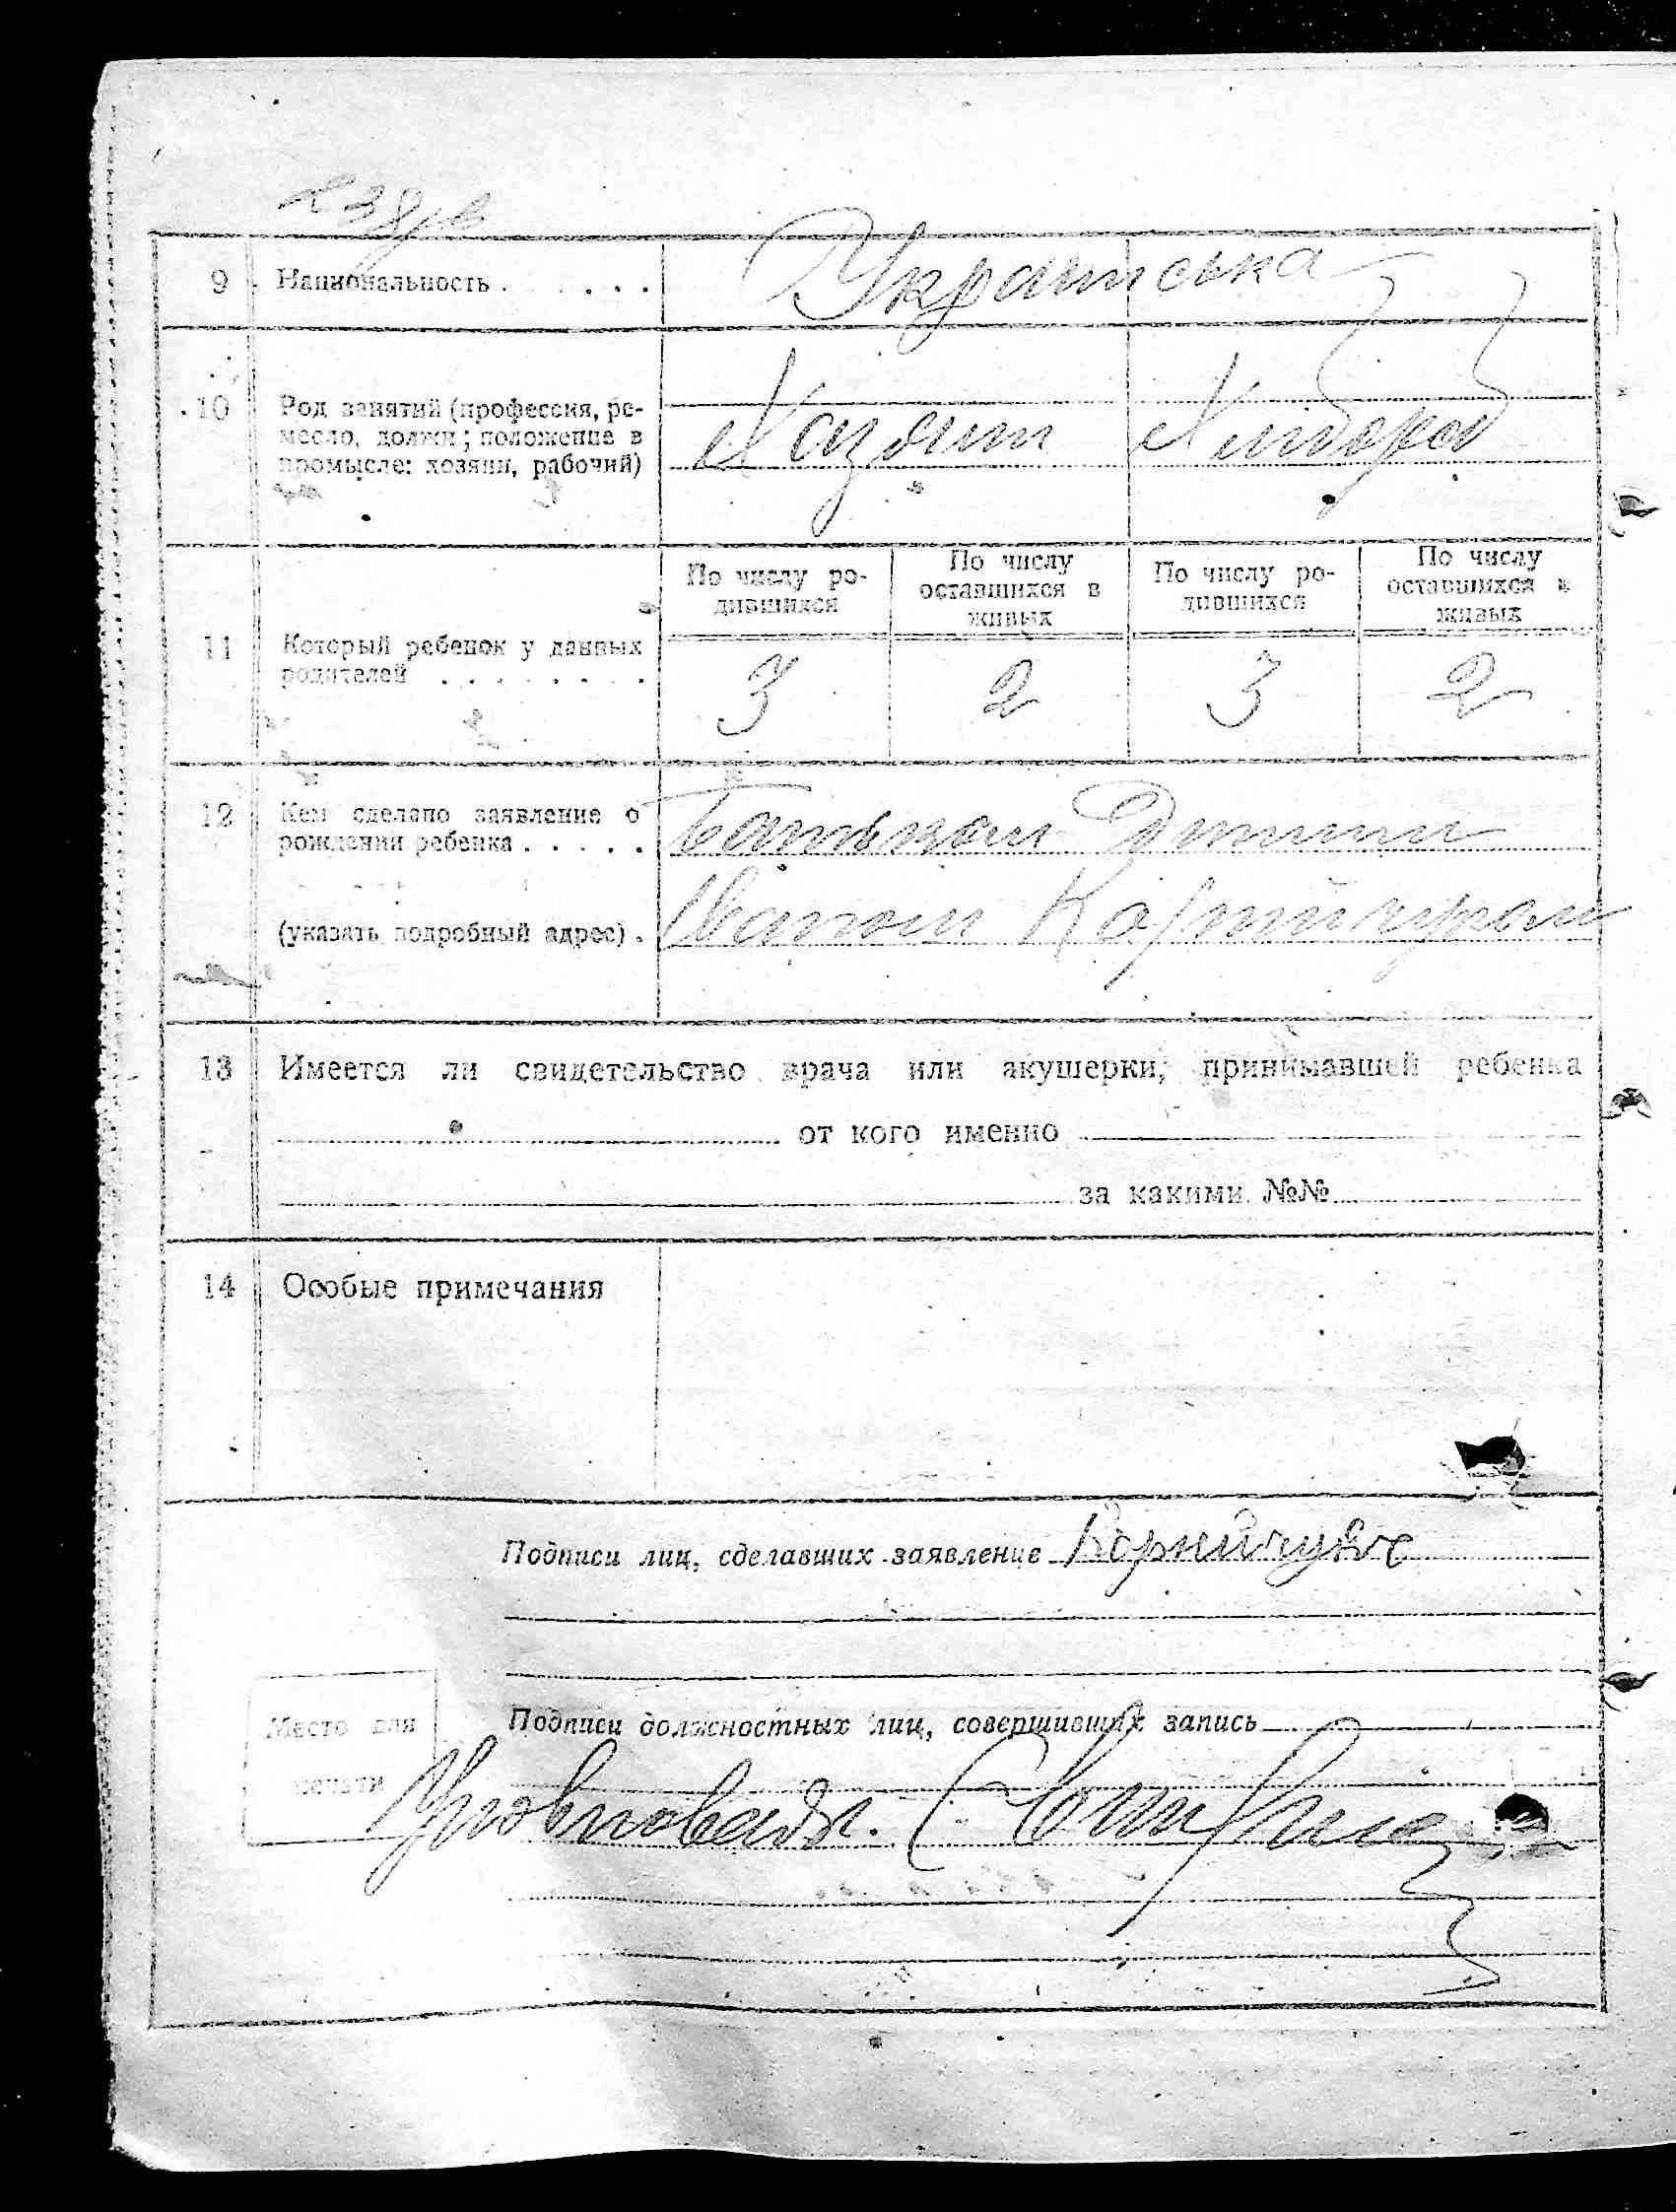 9 Национальность . . . . . Українська
10 Род занятий (профессия, ре-
месло, должн; положение в
промысле: хозяин, рабочий)
По числу ро-
дившихся
По числу
оставшихся в
живых
По числу ро-
дившихся
По числу
оставшихся в
живых
11 Который ребенок у данных
родителей . . . . . . . .
3 2 3 2
12 Кем сделано заявление о
рождении ребенка . . . . . Батьком Дитини
(указать подробный адрес) . Іваном Корнійчуком
13 Имеется ли свидетельство врача или акушерки, принимавшей ребенка
от кого именно
за какими №№
14 Особые примечания
Подписи лиц, сделавших заявление Корнийчук
Место для
печати
Подписи должностных лиц, совершивших запись
Уповноваж.